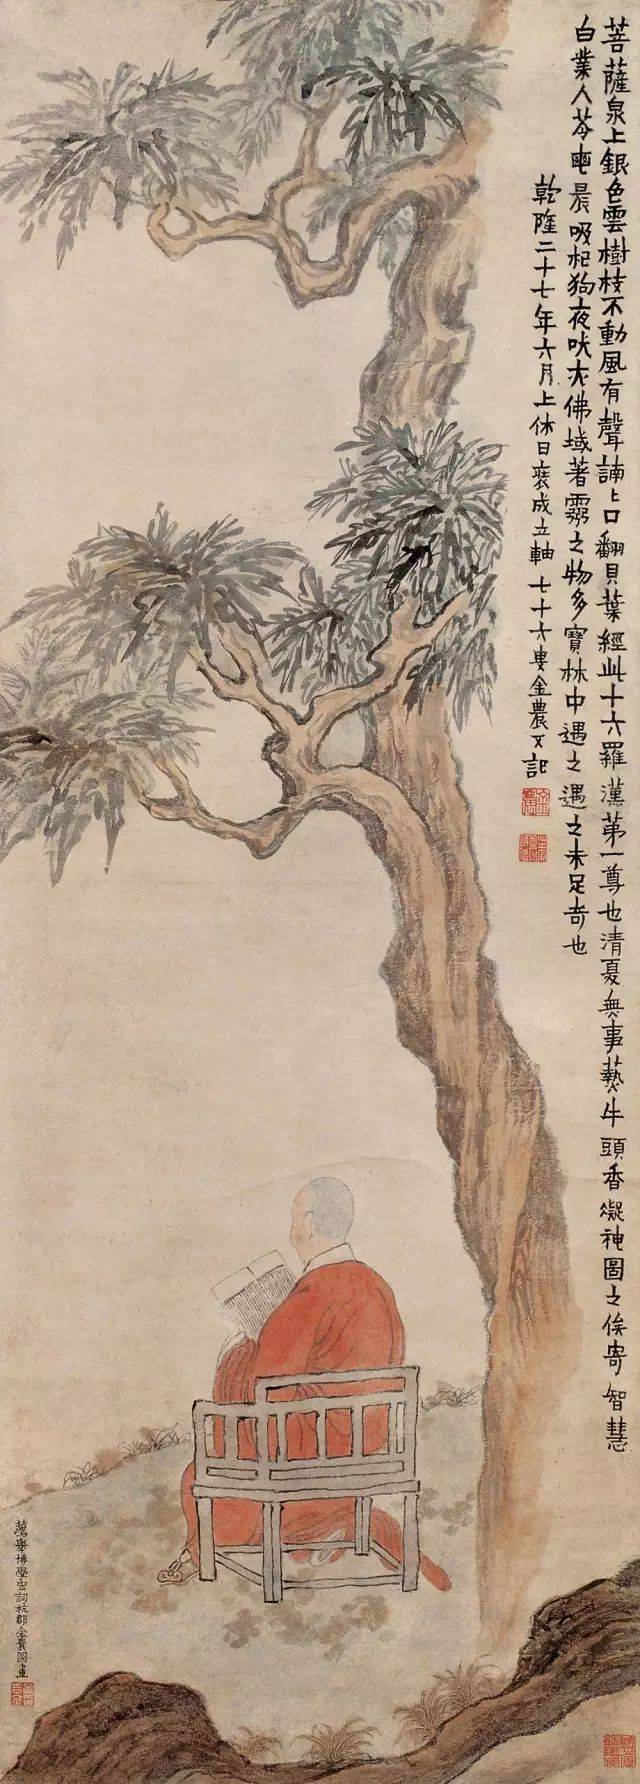 菩薩泉上銀色雲樹枝不動風有聲諵〻口翻貝葉經此十六羅漢第一尊也清夏無事爇牛頭香凝神圖之俟寄智慧
白業人苓晨吸杞狗夜吠佛域著靈之物多寶林中遇之遇之未足奇也
乾隆二十七年六月上休日裝成立軸七十六叟金農又記
薦舉博學宏詞杭郡金農圖畫